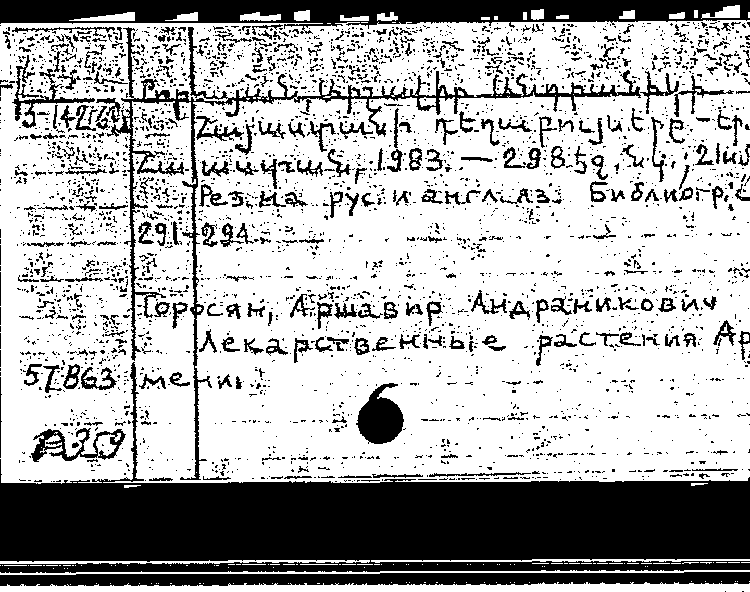 Թորոսյան, Արշավիր Անդրանիկի
5-14216
Հայաստանի դեղաբույսերը. – Եր.
Հայաստան, 1983. — 298 էջ, նկ.; 21սմ
Рез. на рус. и англ. яз. Библиогр.: с
291-294
Торосян, Аршавир Андраникович
Лекарственные растения Ар
57В63 мении.
А359